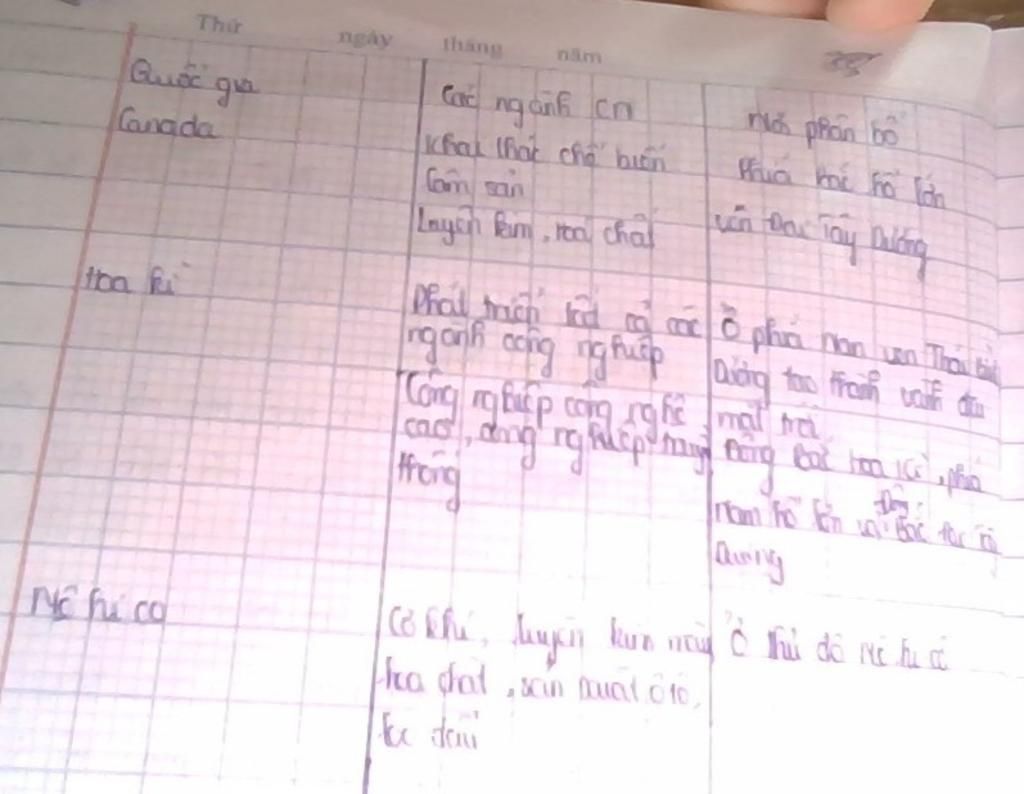 Thứ ngày tháng năm
Quốc gia
Các ngành CN
Nơi phân bố
Canada
Khai thác chế biến
lâm sản
Luyện kim, hoá chất
Phía bắc hồ lớn
ven Đại Tây Dương
Hoa Kì
Phát triển tất cả các
ngành công nghiệp
Công nghiệp công nghệ
cao, công nghiệp truyền
thống
Ở phía nam ven Thái Bình
Dương tạo thành vành đai
mặt trời
Đông Bắc Hoa Kì, phía
nam hồ lớn và Đông Bắc
Dương
Mê hi cô
Cơ khí, luyện kim màu
hoá chất, sản xuất ô tô,
lọc dầu
Ở thủ đô Mê hi cô